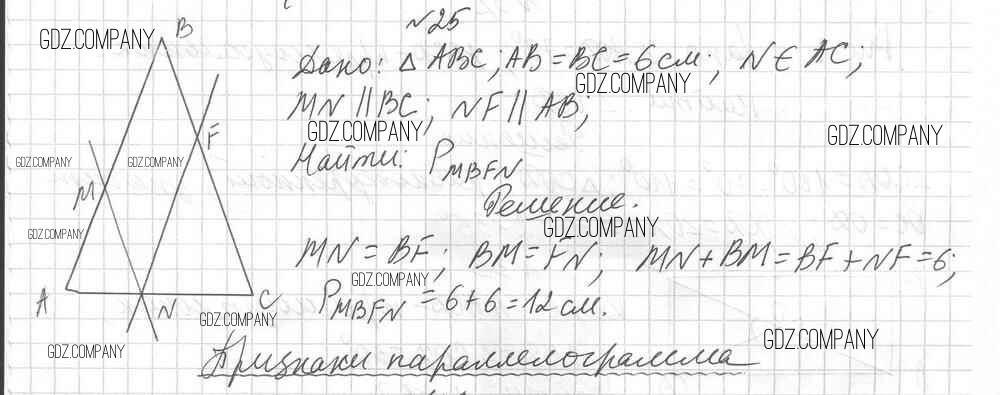 №25
Дано: △ ABC; AB = BC = 6 см; N ∈ AC;
MN || BC; NF || AB;
Найти: P_MBFN
Решение.
MN = BF; BM = FN; MN + BM = BF + NF = 6;
P_MBFN = 6 + 6 = 12 см.
Признаки параллелограмма
B
F
M
A
N
C
GDZ.COMPANY
GDZ.COMPANY
GDZ.COMPANY
GDZ.COMPANY
GDZ.COMPANY
GDZ.COMPANY
GDZ.COMPANY
GDZ.COMPANY
GDZ.COMPANY
GDZ.COMPANY
GDZ.COMPANY
GDZ.COMPANY